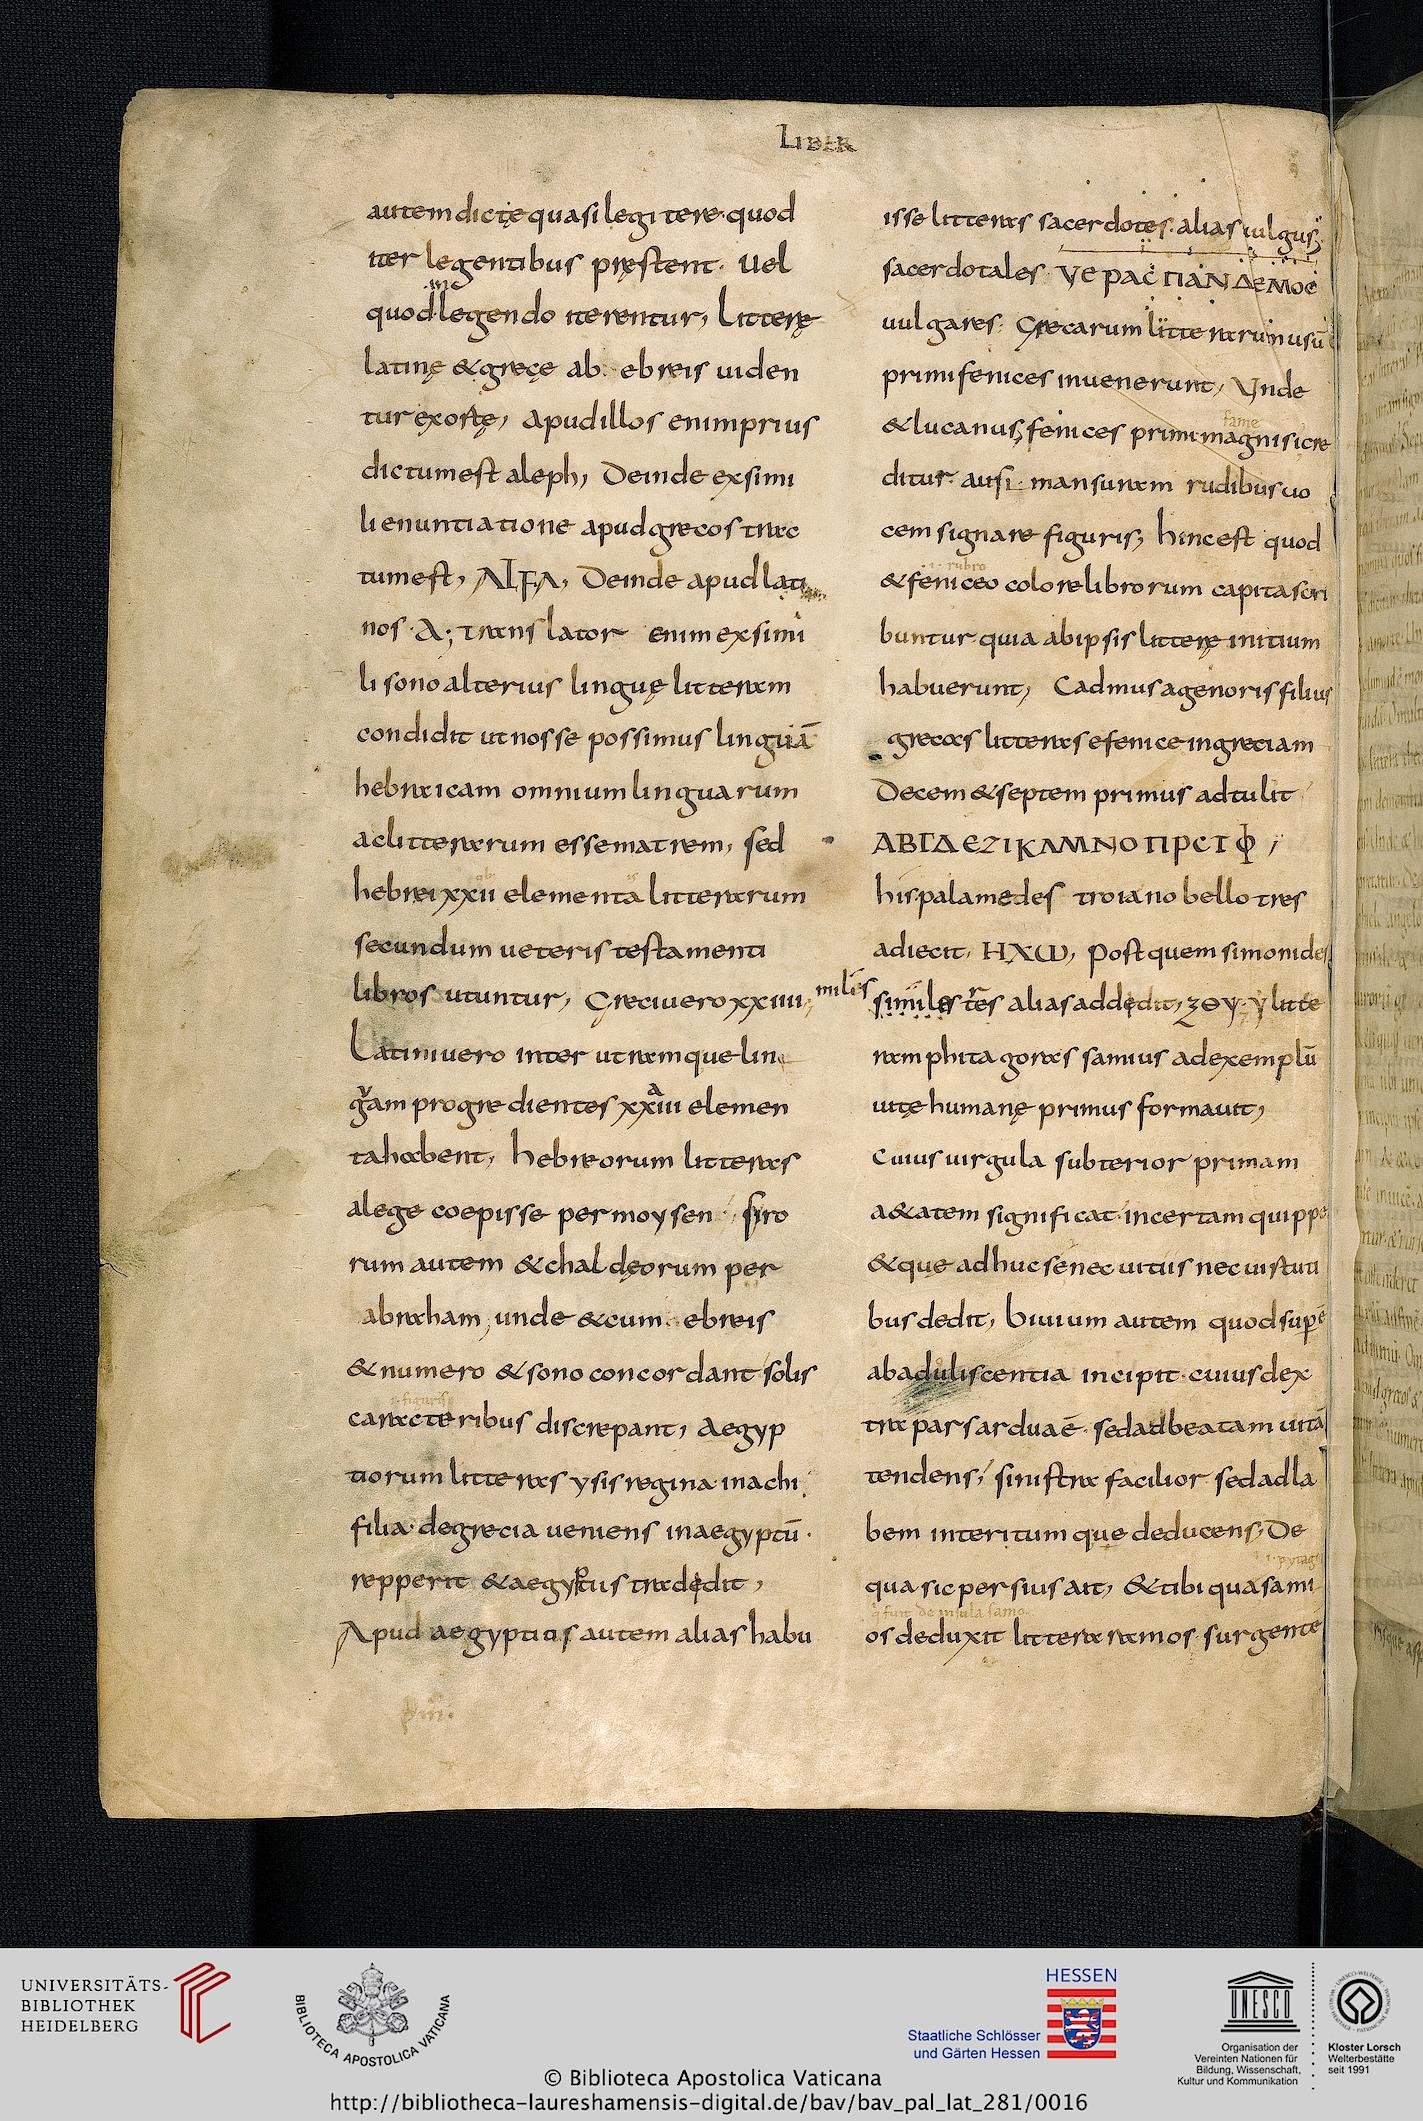 LIBER
autem dictę quasi legitere. quod
iter legentibus pręstent. Uel
quod in legendo iterentur, Litterę
latinę & gręcę ab ebreis uiden
tur exortę, apud illos enim prius
dictum est aleph, Deinde ex simi
li enuntiatione apud grecos trac
tum est, ΑΛΦΑ, Deinde apud lati
nos .A; translator enim ex simi
li sono alterius linguę litteram
condidit ut nosse possimus linguā
hebraicam omnium linguarum
ac litterarum esse matrem, sed
hebrei xxii elementa litterarum
secundum ueteris testamenti
libros utuntur, Greci uero xxiiii,
Latini uero inter utramque lin
guam progredientes xxiii elemen
ta habent, hebreorum litteras
a lege coepisse per moysen. syro
rum autem & chaldęorum per
abraham, unde & cum ebreis
& numero & sono concordant solis
.i. figuris
caracteribus discrepant, Aegyp
tiorum litteras ysis regina inachi
filia. de grecia ueniens in aegyptū.
repperit & aegyptus tradędit,
Apud aegyptius autem alias habu
isse litteras sacerdotes. alias uulgus,
sacerdotales ΥΕΡΑC ΠΑΝΔΕΜΟΕ
uulgares. Grecarum litterarum usū
primi fenices inuenerunt, Unde
fame
& lucanus, fenices primi magni si cre
ditur. ausi. mansuram rudibus uo
cem signare figuris, hinc est quod
.i. rubro
& feniceo colore librorum capita scri
buntur quia ab ipsis litterę initium
habuerunt, Cadmus agenoris filius
grecas litteras e fenice in greciam
Decem & septem primus adtulit
ΑΒΓΔΕΖΙΚΛΜΝΟΠΡCΤΦ;
his palamedes troiano bello tres
adiecit, ΗΧω, post quem simonides
milés
similes tres alias addędit, ΞΘΨ. Υ litte
ram phitagoras samius ad exemplū
uitę humanę primus formauit,
Cuius uirgula subterior primam
a&atem significat incertam quippe
& quę adhuc se nec uitiis nec uirtuti
bus dedit, biuium autem quod supē
ab aduliscentia incipit. cuius dex
tra pars ardua ē. sed ad beatam uitā
tendens, sinistra facilior sed ad la
bem interitumque deducens, De
qua sic persius ait, & tibi qua sami
q fuit de insula samo
os deduxit littera ramos. surgente
UNIVERSITÄTS-
BIBLIOTHEK
HEIDELBERG
BIBLIOTECA APOSTOLICA VATICANA
HESSEN
Staatliche Schlösser
und Gärten Hessen
UNESCO
Organisation der
Vereinten Nationen für
Bildung, Wissenschaft,
Kultur und Kommunikation
Kloster Lorsch
Welterbestätte
seit 1991
© Biblioteca Apostolica Vaticana
http://bibliotheca-laureshamensis-digital.de/bav/bav_pal_lat_281/0016